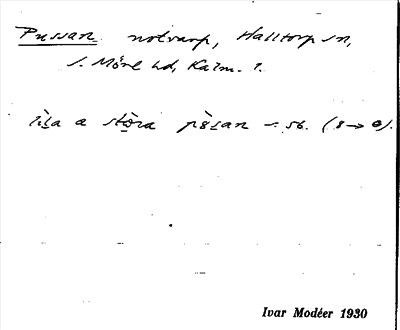 Pussan notvarp, Halltorp sn,
S. Möre hd, Kalm. l.
lìla a stòra pùsan – 56. (8 → ɵ).
Ivar Modéer 1930